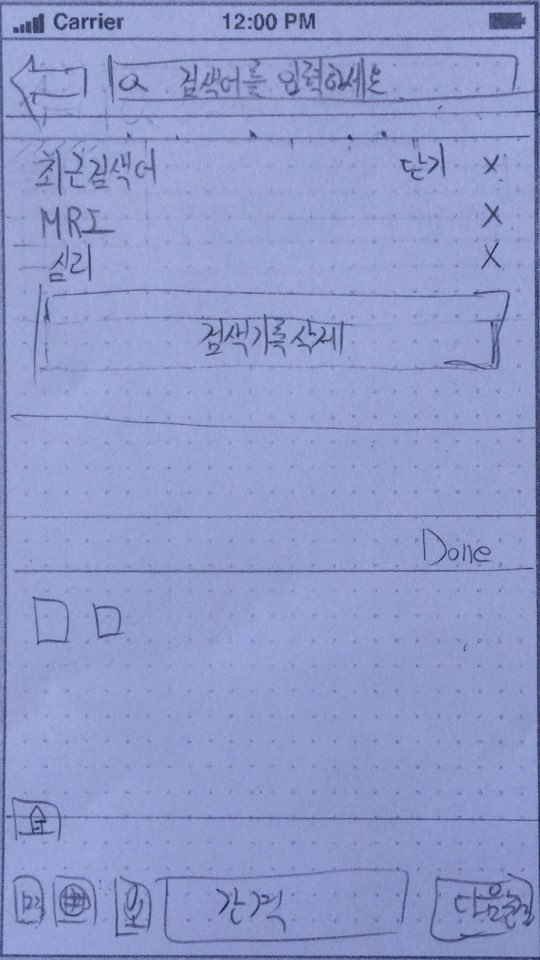 Carrier 12:00 PM
검색어를 입력하세요
최근검색어 닫기 X
MRI X
심리 X
검색기록삭제
Done
간격